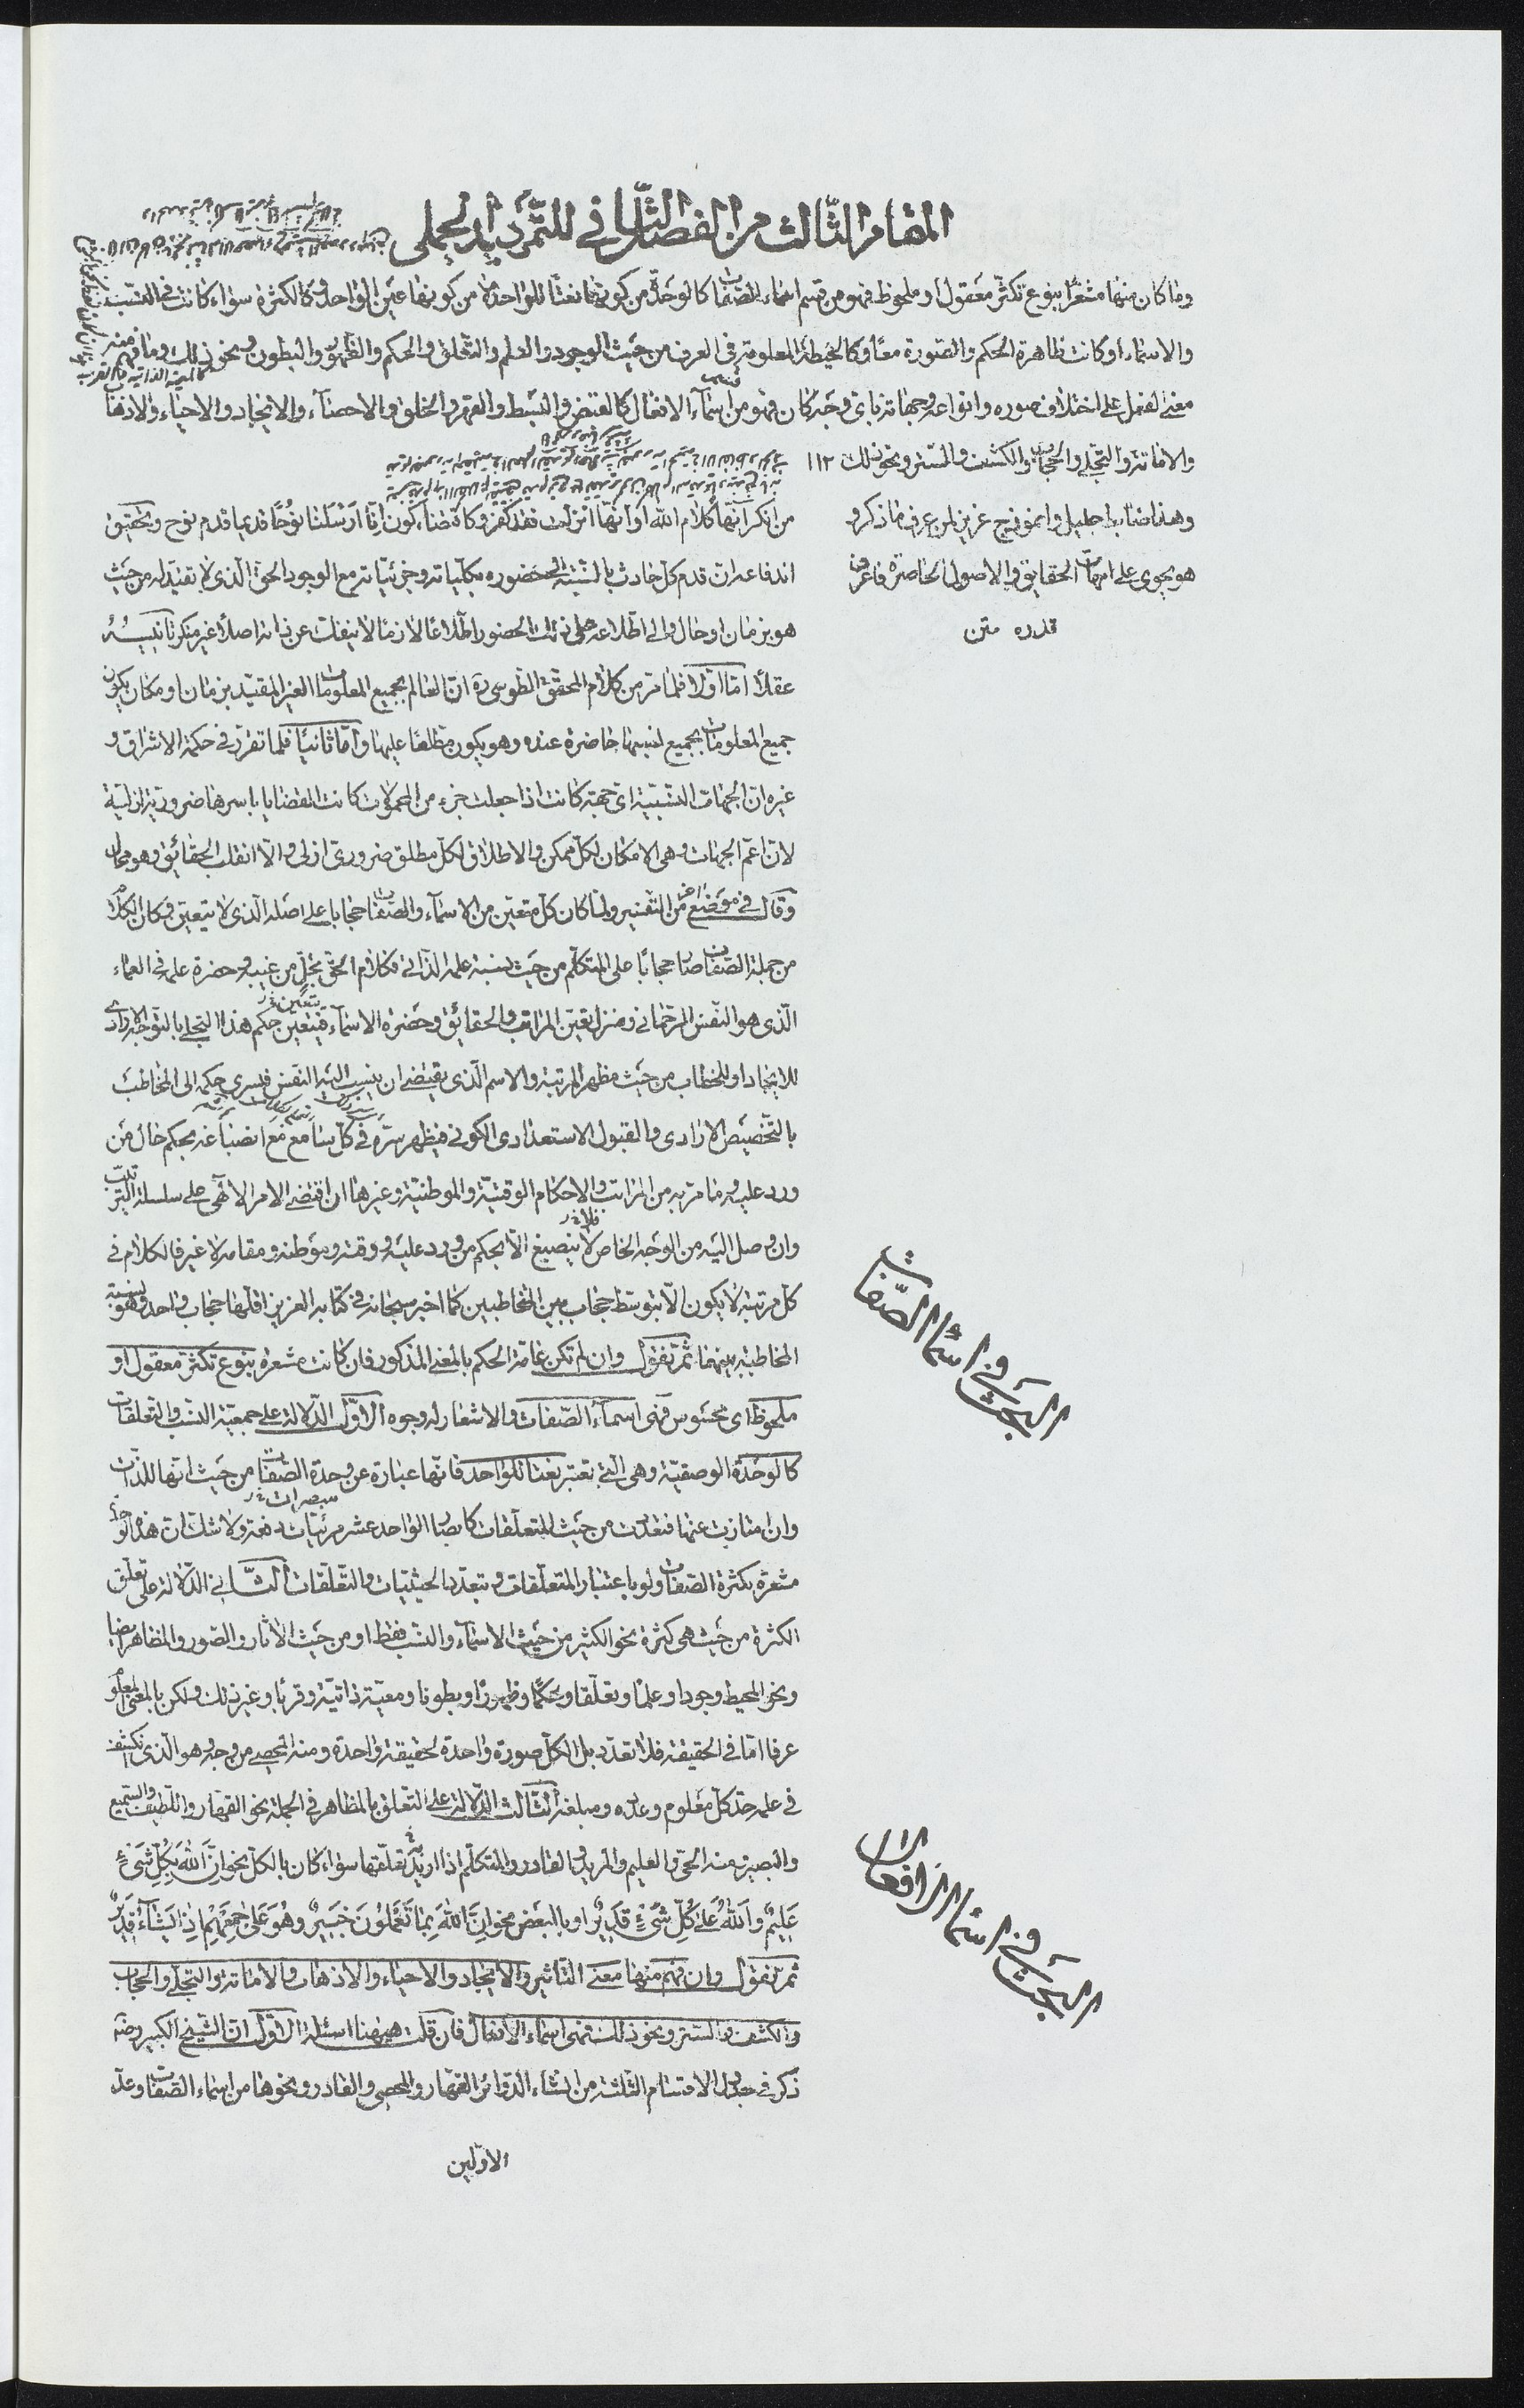 المقام الثالث من الفصل الثاني للتمهيد الجملي
وما كان منها مشعرًا بنوع تكثر معقول او ملحوظ فهو من قسم اسماء الصفات كالوحدة من كونها نعتًا للواحد لا من كونها عين الواحد وكالكثرة سواء كانت في النسب
والاسماء او كانت ظاهرة الحكم والصورة معًا وكالحيطة المعلومة في العرف من حيث الوجود والعلم والتعلق والحكم والظهور والبطون ونحو ذلك وما فهم منه
معنى الفعل على اختلاف صوره وانواعه وجهاته باي وجه كان فهو من اسماء الافعال كالقبض والبسط والقهر والخلق والاحصاء والايجاد والاحياء والاذهاب
والاماتة والتجلي والحجاب والكشف والستر ونحو ذلك ١١٢
وهذا ضابط جليل وانموذج عزيز لمن عرف ما ذكر و
هو يحوي على امهات الحقايق والاصول الحاصرة فاعرف
قدره متن
من انكر انها كلام الله او انها انزلت فقد كفر وكاقتضاء كون انا ارسلنا نوحًا قديما قدم نوح وتحقيق
اندفاعه ان قدم كل حادث بالنسبة الى حضوره بكلياته وجزئياته مع الوجود الحق الذي لا تقيد له من حيث
هو بزمان او حال والى اطلاعه على ذلك الحضور اطلاعًا لازمًا لا ينفك عن ذاته اصلًا غير منكر تانيسه
عقلًا اما اولا فلما مر من كلام المحقق الطوسي ره ان العالم بجميع المعلومات الغير المقيد بزمان او مكان يكون
جميع المعلومات بجميع نسبها حاضرة عنده وهو يكون مطلعًا عليها واما ثانيًا فلما تقرر في حكمة الاشراق و
غيره ان الجهات النسبية اي جهة كانت اذا جعلت جزء من المحمولات كانت القضايا باسرها ضرورية ازلية
لان اعم الجهات وهي الامكان لكل ممكن والاطلاق لكل مطلق ضروري ازلي والا انقلب الحقائق وهو محال
وقال في موضع اخر من التفسير ولما كان كل متعين من الاسماء والصفات حجابا على اصله الذي لا يتعين وكان الكلام
من جملة الصفات صار حجابًا على المتكلم من حيث نسبة علمه الذاتي فكلام الحق تجل من غيبه وحضرة علمه في العماء
الذي هو النفس الرحماني ومنزل تعين المراتب والحقائق وحضرة الاسماء فيتعين حكم هذا التجلي بالتوجه الارادي
للايجاد او للخطاب من حيث مظهر المرتبة والاسم الذي يقتضي ان ينسب اليه النفس فيسري حكمه الى المخاطب
بالتخصيص الارادي والقبول الاستعدادي الكوني فيظهر سره في كل سامع مع انصباغه بحكم حال من
ورد عليه وما مر به من المراتب والاحكام الوقتية والموطنية وغيرها ان اقتضى الامر الالهي على سلسلة الترتيب
وان وصل اليه من الوجه الخاص لا ينصبغ الا بحكم من ورد عليه ووقته وموطنه ومقامه لا غير فالكلام في
كل مرتبة لا يكون الا بتوسط حجاب بين المخاطبين كما اخبر سبحانه في كتابه العزيز اقلها حجاب واحد وهو نسبة
المخاطبة بينهما ثم نقول وان لم تكن عامة الحكم بالمعنى المذكور فان كانت مشعرة بنوع تكثر معقول او
ملحوظ اى محسوس فهي اسماء الصفات والاشعار له وجوه الاول الدلالة على جمعية النسب والتعلقات
كالوحدة الوصفية وهي التي تعتبر نعتا للواحد فانها عبارة عن وحدة الصفات من حيث انها للذات
وان امتازت عنها فتعددت من حيث المتعلقات كابصار الواحد عشر مرئيات دفعة ولا شك ان هذه الوحدة
مشعرة بكثرة الصفات ولو باعتبار المتعلقات وتعدد الحيثيات والتعلقات الثاني الدلالة على تعلق
الكثرة من حيث هي كثرة نحو الكثير من حيث الاسماء والنسب فقط او من حيث الاثار والصور والمظاهر ايضا
ونحو المحيط وجودا وعلما وتعلقا وحكما وظهورًا وبطونا ومعية ذاتية وقربا وغير ذلك ولكن بالمعنى المعلوم
عرفا اما في الحقيقة فلا تعدد بل الكل صورة واحدة لحقيقة واحدة ومنه المحصي من وجه وهو الذي انكشف
في علمه حد كل معلوم وعده ومبلغه الثالث الدلالة على التعلق بالمظاهر في الجملة نحو القهار واللطيف والسميع
والبصير ومنه الحي والعليم والمريد والقادر والمتكلم اذا اريد تعلقها سواء كان بالكل نحو ان الله بكل شيء
عليم والله على كل شيء قدير او بالبعض نحو ان الله بما تعملون خبير وهو على جمعهم اذا يشاء قدير
ثم نقول وان فهم منها معنى التاثير والايجاد والاحياء والاذهاب والاماتة والتجلي والحجاب
والكشف والستر ونحو ذلك فهي اسماء الافعال فان قلت ههنا اسئلة الاول ان الشيخ الكبير رضه
ذكر في جدول الاقسام الثلثة من انشاء الدوائر القهار والمحصي والقادر ونحوها من اسماء الصفات وعد
البحث في اسماء الصفات
البحث في اسماء الافعال
الاولين